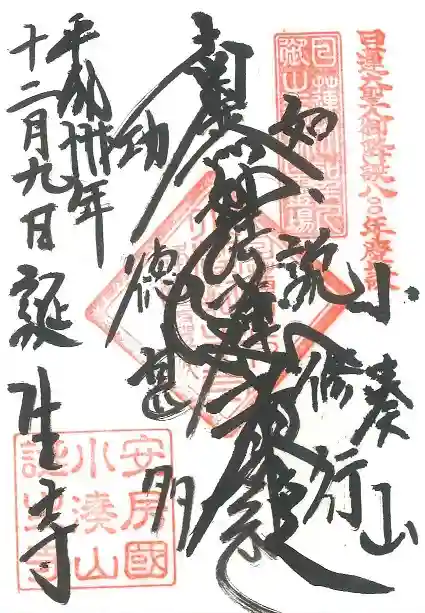 日蓮大聖人御降誕八〇〇年慶讃
小湊山
如説修行
南無妙法蓮華経
功徳甚多
平成卅年
十二月九日 誕生寺
安房國
小湊山
誕生寺